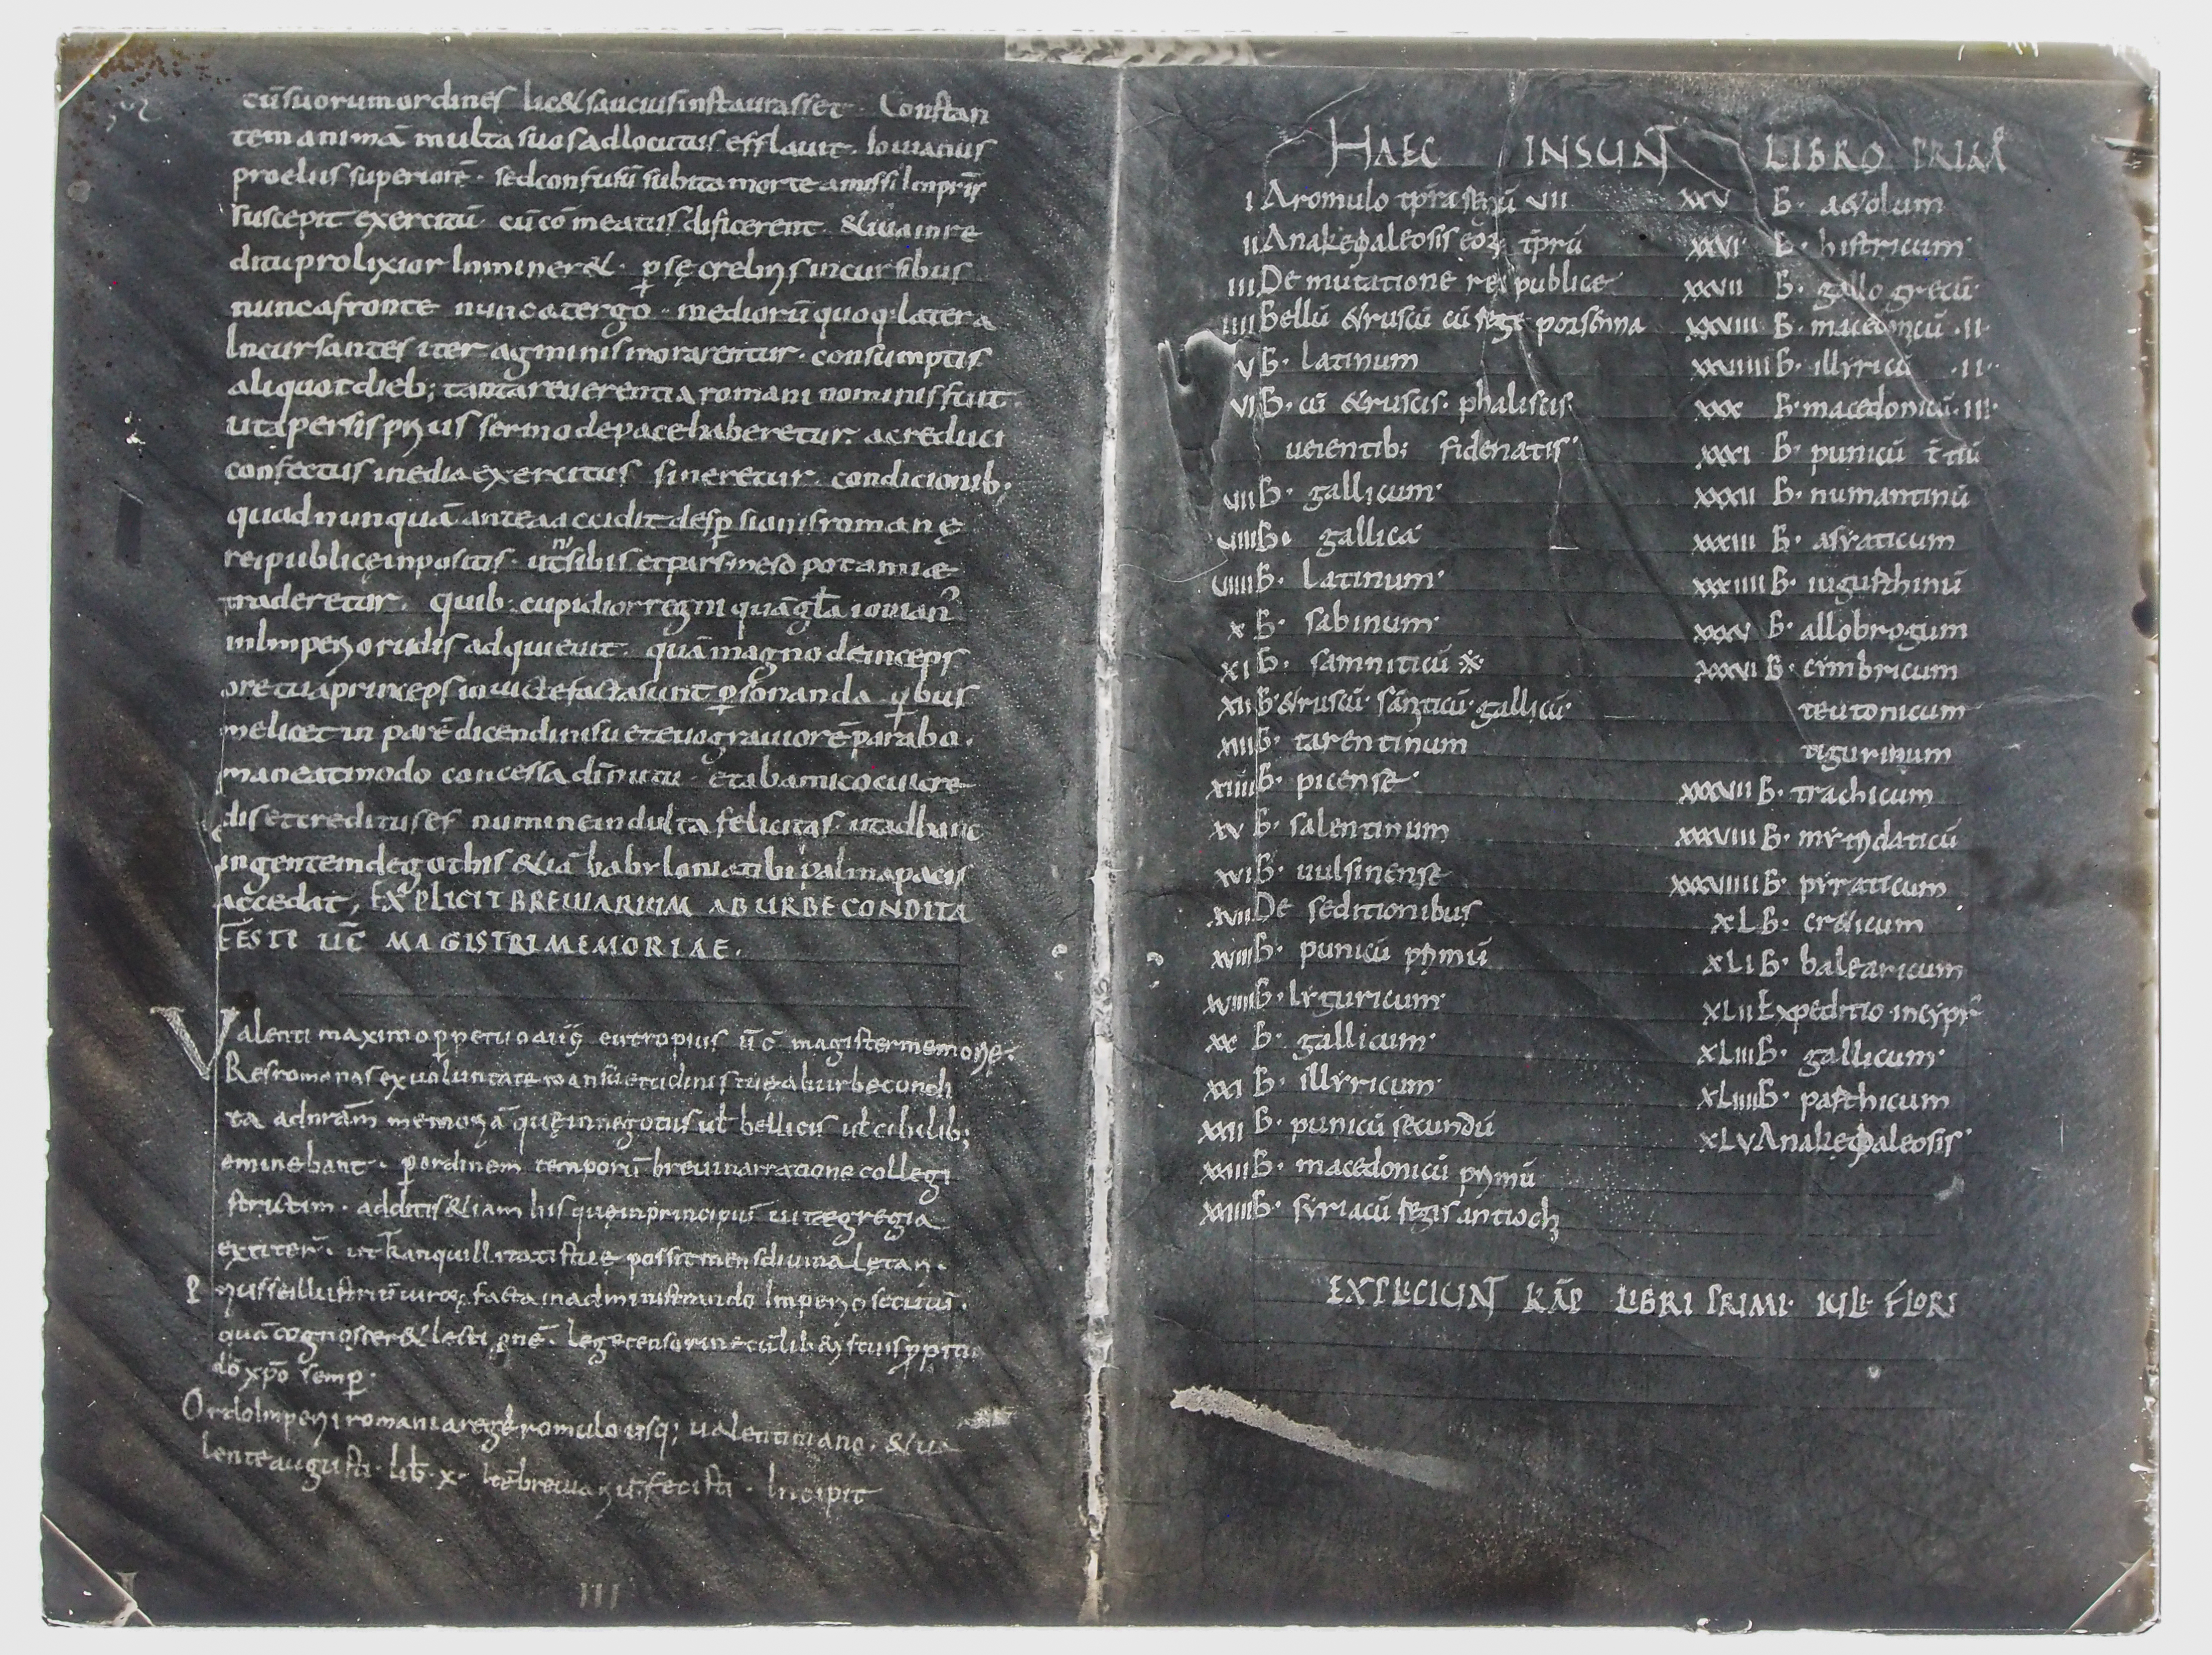 cū suorum ordines lic& saucius instaurasset · Constan
tem animā multa suos adlocutus efflauit · Iouianus
proeliis superiorē · sed confusū subita morte amissi Inpr̄is
suscepit exercitū cū cōmeatus dificerent &iuainre
ditu prolixior Inminer& · ꝑsę crebris incursibus
nunc a fronte nunc a tergo · mediorū quoq: latera
Incursantes iter agminis morarentur · consumptis
aliquot dieb; tanta reuerentia romani nominis fuit ·
uta persis prius sermo de pace haberetur · ac reduci
confectus inedia exercitus sineretur · condicionib;
quod nunquā antea accidit desꝑsionis romanę
rei publicę inpositis · ut nisibis et pars mesopotamiæ
traderetur · quib · cupidior regni quā gl̄a iouian᾽
in Imperio rudis adquieuit · quā magno deinceps
ore tua princeps inuicte facta sunt ꝑsonanda qⁱbus
me licet in parē dicendi nisu et euo grauiorē parabo ·
maneat modo concessa dī nutu · et ab amico cui cre
dis et creditus es numine indulta felicitas · ut ad hanc
ingentem de gothis &iā babyloniæ tibi palma pacis
accedat, EXPLICIT BREUIARIUM AB URBE CONDITA
FESTI ŪC̄ MAGISTRI MEMORIAE ·
Valenti maximo ꝑpetuo auḡ eutropius ūc̄ magister memorię ·
Res romanas ex uoluntate mansuetudinis tuę ab urbe condi
ta ad nr̄am memoriā quę in negotiis ul̄ bellicis ul̄ cibilib;
eminebant · ꝑ ordinem temporū breui narratione collegi
strictim · additis &iam his quę in principū uita egregia
extiter̄ · ut tranquillitatis tuę possit mens diuina lętari ·
P rius se illustriū uiroꝝ facta in administrando Imperio secutū ·
quā cognoscer& lectiōnē · lege censorine cū lib&ris tuis ꝑpetu
dō xp̄o semꝑ ·
Ordo Imperii romani a rege romulo usq; ualentiniano · &ua
lente augusti · lib̄ · x · Itē breuiariū festi · Incipit
III
HAEC INSUNT LIBRO PRIMO
I A romulo tp̄ra regū VII
II Anakeφaleosis eoꝝ tp̄rū
III De mutatione rei publice
IIII Bellū &ruscū cū rege porsenna
V B · latinum
VI B · cū &ruscis · phaliscis
ueientib; fidenatis
VII B · gallicum
VIII B · gallicā
VIIII B · Latinum
X B · sabinum
XI B · samniticū ※
XII B · &ruscū · sāniticū · gallicū
XIII B · tarentinum
XIIII B · picense
XV B · salentinum
XVI B · uulsinense
XVII De seditionibus
XVIII B · punicū primū
XVIIII B · Lyguricum
XX B · gallicum
XXI B · illyricum
XXII B · punicū secundū
XXIII B · macedonicū primū
XXIIII B · syriacū regis antiochi
XXV B · a&olum
XXVI B · histricum
XXVII B · gallo grecū
XXVIII B · macedonicū · II ·
XXVIIII B · illyricū · II ·
XXX B · macedonicū · III ·
XXXI B · punicū t̄tiū
XXXII B · numantinū
XXXIII B · asyaticum
XXXIIII B · iugurthinū
XXXV B · allobrogum
XXXVI B · cimbricum
teutonicum
tigurinum
XXXVII B · trachicum
XXXVIII B · mytridaticū
XXXVIIII B · pyraticum
XL B · cr&icum
XLI B · balearicum
XLII Expeditio in cypr̄
XLIII B · gallicum
XLIIII B · parthicum
XLV Anakeφaleosis
EXPLICIUNT KĀP LIBRI PRIMI · IULI · FLORI